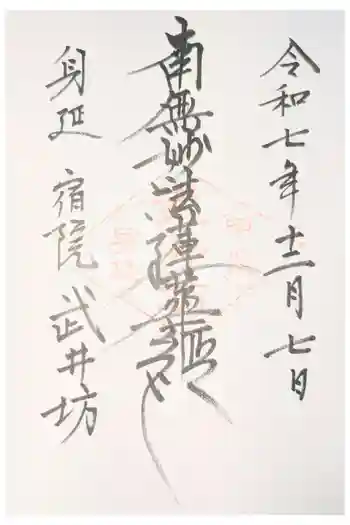 令和七年十二月七日
南無妙法蓮華経
身延 宿院 武井坊